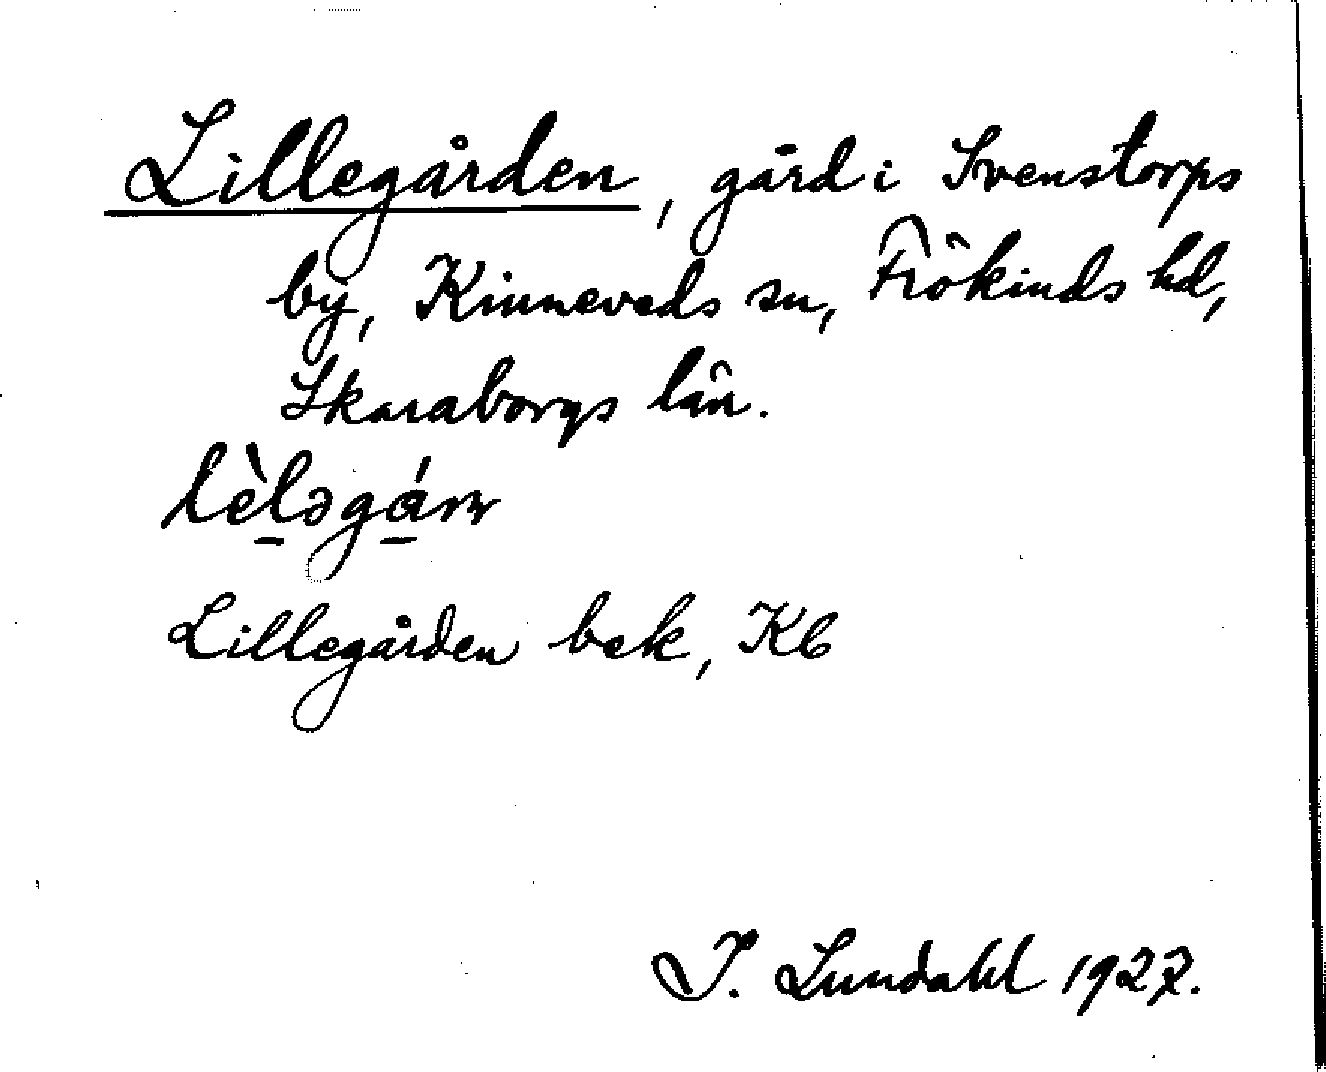 Lillegården, gård i Svenstorps
by, Kinneveds sn, Frökinds hd,
Skaraborgs län.
lèləgárn
Lillegården bek, Kb
I. Lundahl 1927.